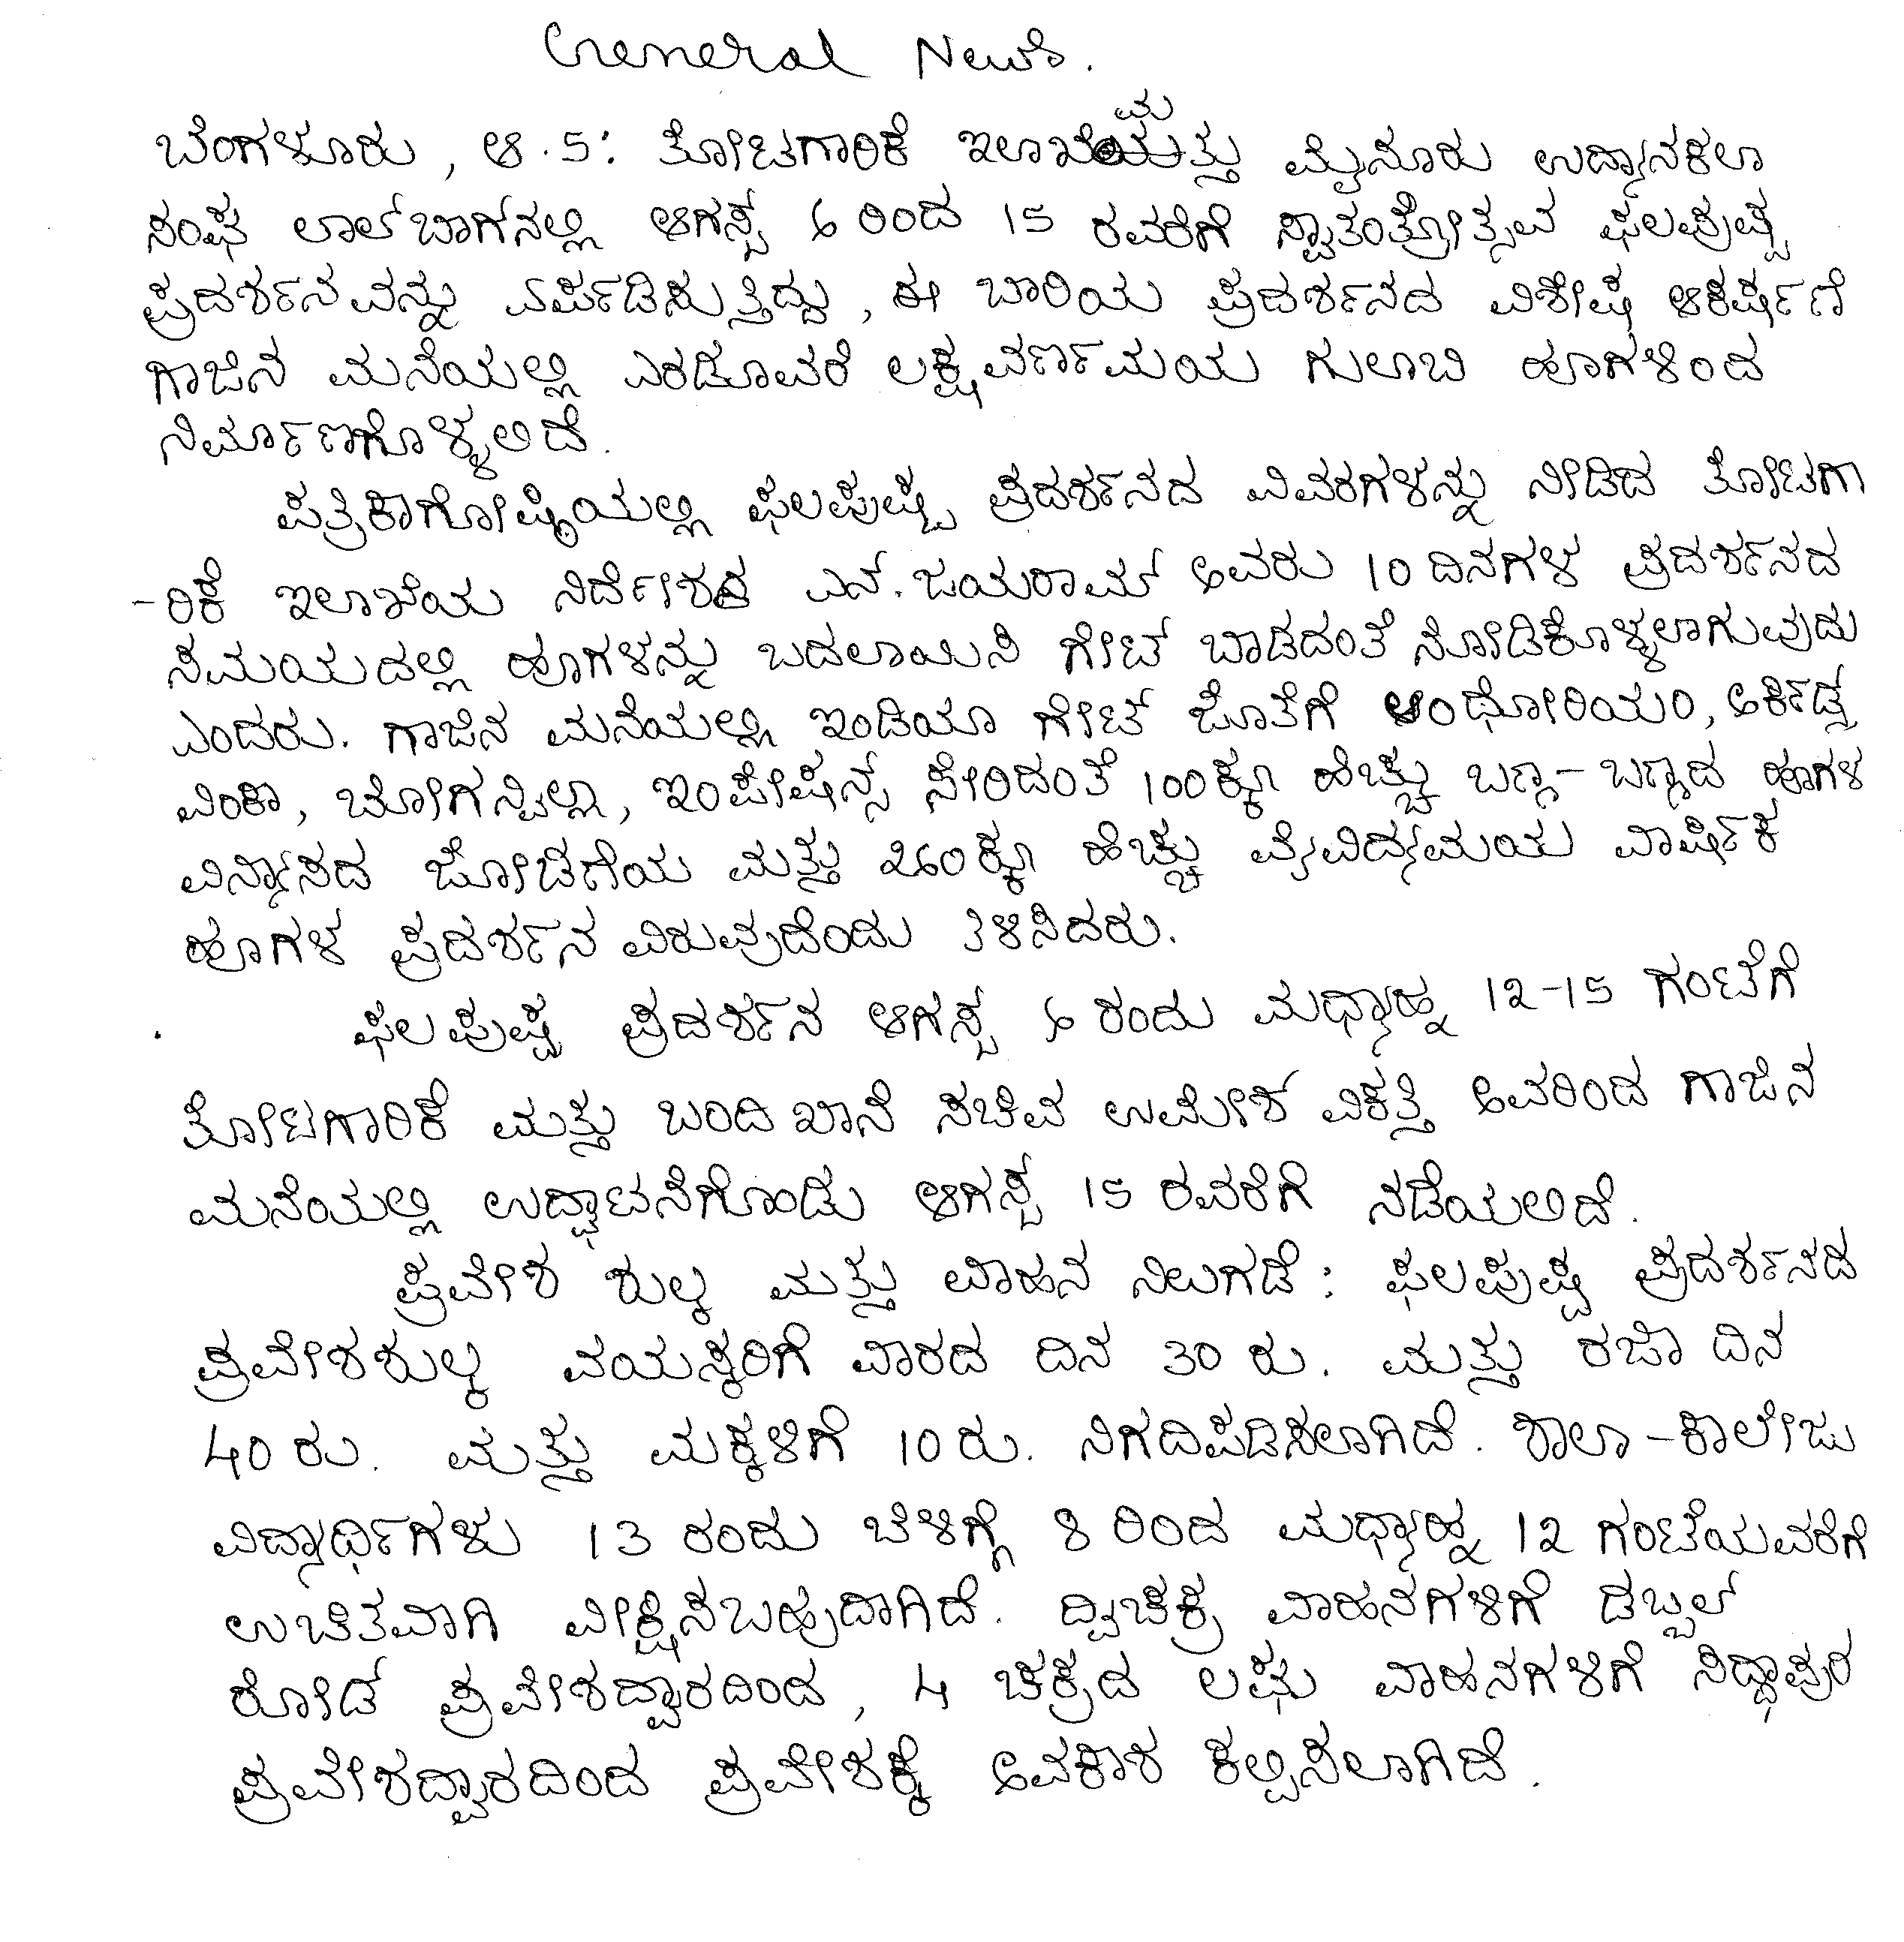 General News.
ಬೆಂಗಳೂರು, ಆ. 5: ತೋಟಗಾರಿಕೆ ಇಲಾಖೆ ಮತ್ತು ಮೈಸೂರು ಉದ್ಯಾನಕಲಾ
ಸಂಘ ಲಾಲ್‌ಬಾಗ್‌ನಲ್ಲಿ ಆಗಸ್ಟ್ 6 ರಿಂದ 15 ರವರೆಗೆ ಸ್ವಾತಂತ್ರೋತ್ಸವ ಫಲಪುಷ್ಪ
ಪ್ರದರ್ಶನವನ್ನು ಏರ್ಪಡಿಸುತ್ತಿದ್ದು, ಈ ಬಾರಿಯ ಪ್ರದರ್ಶನದ ವಿಶೇಷ ಆಕರ್ಷಣೆ
ಗಾಜಿನ ಮನೆಯಲ್ಲಿ ಎರಡೂವರೆ ಲಕ್ಷವರ್ಣಮಯ ಗುಲಾಬಿ ಹೂಗಳಿಂದ
ನಿರ್ಮಾಣಗೊಳ್ಳಲಿದೆ.
ಪತ್ರಿಕಾಗೋಷ್ಠಿಯಲ್ಲಿ ಫಲಪುಷ್ಪ ಪ್ರದರ್ಶನದ ವಿವರಗಳನ್ನು ನೀಡಿದ ತೋಟಗಾ
-ರಿಕೆ ಇಲಾಖೆಯ ನಿರ್ದೇಶಕ ಎನ್. ಜಯರಾಮ್ ಅವರು 10 ದಿನಗಳ ಪ್ರದರ್ಶನದ
ಸಮಯದಲ್ಲಿ ಹೂಗಳನ್ನು ಬದಲಾಯಿಸಿ ಗೇಟ್ ಬಾಡದಂತೆ ನೋಡಿಕೊಳ್ಳಲಾಗುವುದು
ಎಂದರು. ಗಾಜಿನ ಮನೆಯಲ್ಲಿ ಇಂಡಿಯಾ ಗೇಟ್ ಜೊತೆಗೆ ಆಂಥೋರಿಯಂ, ಆರ್ಕಿಡ್ಸ್
ವಿಂಕಾ, ಬೋಗನ್ವಿಲ್ಲಾ, ಇಂಪೇಷನ್ಸ್ ಸೇರಿದಂತೆ 100ಕ್ಕೂ ಹೆಚ್ಚು ಬಗ್ಗ-ಬಗ್ಗದ ಹೂಗಳ
ವಿನ್ಯಾಸದ ಜೋಡಣೆಯ ಮತ್ತು 260ಕ್ಕೂ ಹೆಚ್ಚು ವೈವಿದ್ಯಮಯ ವಾರ್ಷಿಕ
ಹೂಗಳ ಪ್ರದರ್ಶನ ವಿರುವುದೆಂದು ತಿಳಿಸಿದರು.
ಫಲಪುಷ್ಪ ಪ್ರದರ್ಶನ ಆಗಸ್ಟ್ 6 ರಂದು ಮಧ್ಯಾಹ್ನ 12-15 ಗಂಟೆಗೆ
ತೋಟಗಾರಿಕೆ ಮತ್ತು ಬಂದಿಖಾನೆ ಸಚಿವ ಉಮೇಶ್ ವಿಕತ್ತಿ ಅವರಿಂದ ಗಾಜಿನ
ಮನೆಯಲ್ಲಿ ಉದ್ಘಾಟನೆಗೊಂಡು ಆಗಸ್ಟ್ 15 ರವರೆಗೆ ನಡೆಯಲಿದೆ.
ಪ್ರವೇಶ ಶುಲ್ಕ ಮತ್ತು ವಾಹನ ನಿಲುಗಡೆ: ಫಲಪುಷ್ಪ ಪ್ರದರ್ಶನದ
ಪ್ರವೇಶಶುಲ್ಕ ವಯಸ್ಕರಿಗೆ ವಾರದ ದಿನ 30 ರು. ಮತ್ತು ರಜಾ ದಿನ
40 ರು. ಮತ್ತು ಮಕ್ಕಳಿಗೆ 10 ರು. ನಿಗದಿಪಡಿಸಲಾಗಿದೆ. ಶಾಲಾ-ಕಾಲೇಜು
ವಿದ್ಯಾರ್ಥಿಗಳು 13 ರಂದು ಬೆಳಿಗ್ಗೆ 8 ರಿಂದ ಮಧ್ಯಾಹ್ನ 12 ಗಂಟೆಯವರೆಗೆ
ಉಚಿತವಾಗಿ ವೀಕ್ಷಿಸಬಹುದಾಗಿದೆ. ದ್ವಿಚಕ್ರ ವಾಹನಗಳಿಗೆ ಡಬ್ಬಲ್
ರೋಡ್ ಪ್ರವೇಶದ್ವಾರದಿಂದ, 4 ಚಕ್ರದ ಲಘು ವಾಹನಗಳಿಗೆ ಸಿದ್ಧಾಪುರ
ಪ್ರವೇಶದ್ವಾರದಿಂದ ಪ್ರವೇಶಕ್ಕೆ ಅವಕಾಶ ಕಲ್ಪಿಸಲಾಗಿದೆ.